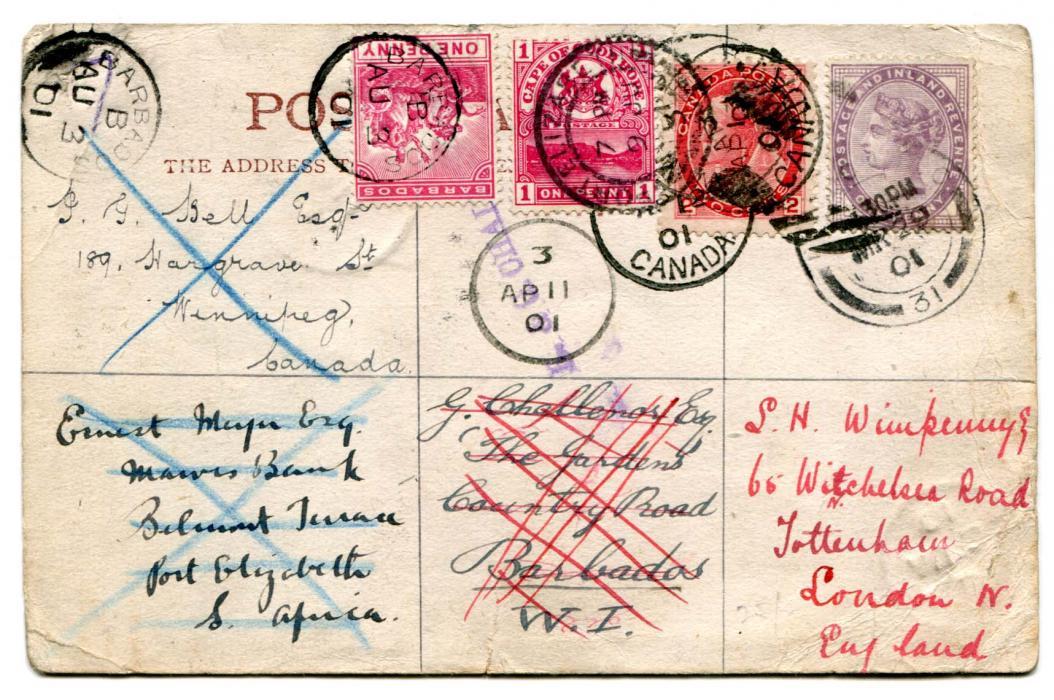 BARBADOS
B
AU 3
01
POS
THE ADDRESS T
ONE PENNY
BARBADOS
B
AU 3
01
BARBADOS
1 CAPE OF GOOD HOPE 1
POSTAGE
1 ONE PENNY 1
CANADA POSTAGE
2 CENTS 2
01
CANADA
POSTAGE AND INLAND REVENUE
30PM
01
31
3
AP 11
01
Bell Esq
189, Hargrave St
Winnipeg,
Canada.
Ernest Esq.
Bank
Belmont Terrace
Port Elizabeth
S. Africa.
G. Challenor Esq
"The Gardens"
Country Road
Barbados
W. I.
S. H. Wimpenny
65 Witchelsea Road
N.
Tottenham
London N.
England